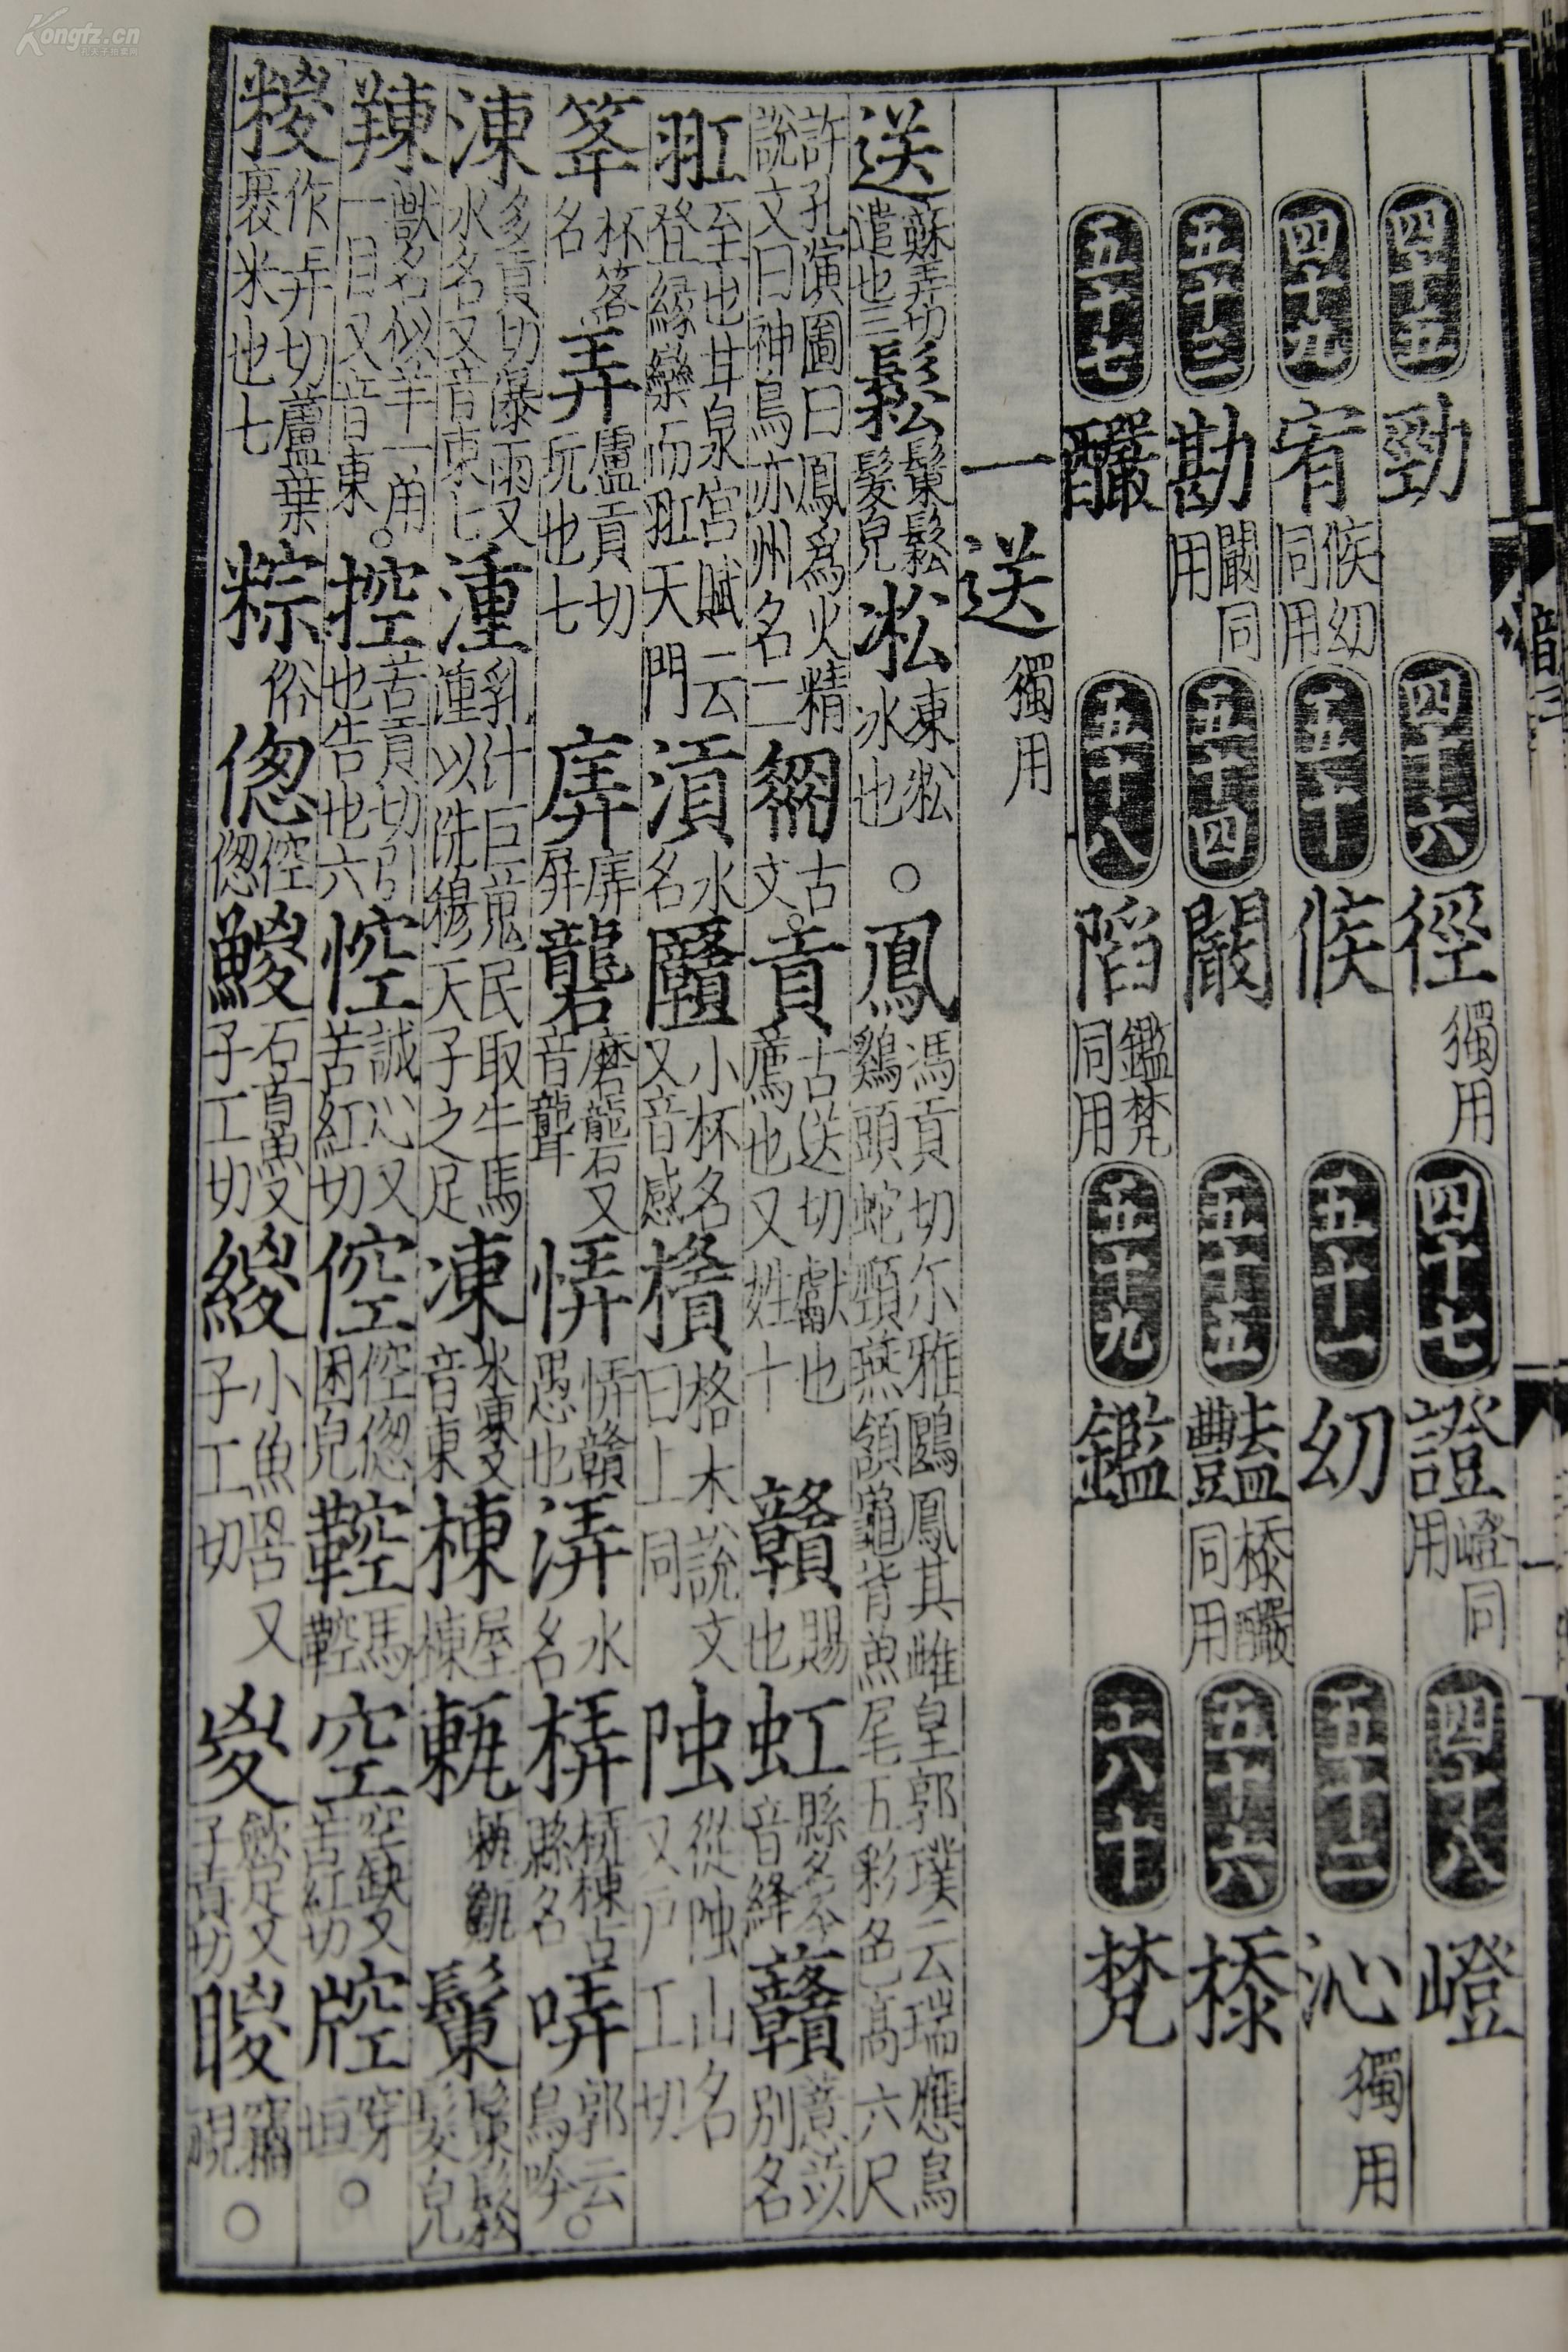 四十五勁 四十六徑獨用 四十七證嶝同用 四十八嶝
四十九宥候幼同用 五十候 五十一幼 五十二沁獨用
五十三勘闞同用 五十四闞 五十五豔㮇釅同用 五十六㮇
五十七釅 五十八陷鑑梵同用 五十九鑑 六十梵
一送獨用
送蘇弄切遣也三 鬆鬤鬆髮皃 凇凍凇冰也○鳳馮貢切尒雅鶠鳳其雌皇郭璞云瑞應鳥鷄頭蛇頸燕頷龜背魚尾五彩色高六尺
許孔演圖曰鳳爲火精說文曰神鳥亦州名二 古文○貢古送切獻也薦也又姓十 贛賜也 虹縣名今音絳 贛薏苡別名
羾至也甘泉宮賦云登緣欒而羾天門 湏水名 小杯名又音感 槓格木說文曰上同 從山名又戶工切
筝杯筝名 弄盧貢切玩也七 㢅㢅屏 礱磨礱又音聾 㟖贛愚也 水名 梇梇棟古縣名 哢郭云鳥吟○
涷多貢切瀑雨又水名又音東七 湩乳汁巨蒐民取牛馬湩以洗穆天子之足 凍冰凍又音東 棟屋棟 鬤鬆髮皃
䍶獸名似羊一角一目又音東○控苦貢切引也告也六 悾誠心又苦紅切 倥倥偬困皃 鞚馬鞚 空空缺又苦紅切 穿垣○
糉作弄切蘆葉裹米也七 粽俗 偬倥偬 鯼石首魚又子工切 緵小魚罟又子工切 㚇斂足又子紅切 䁓窺視○
Kongfz.cn